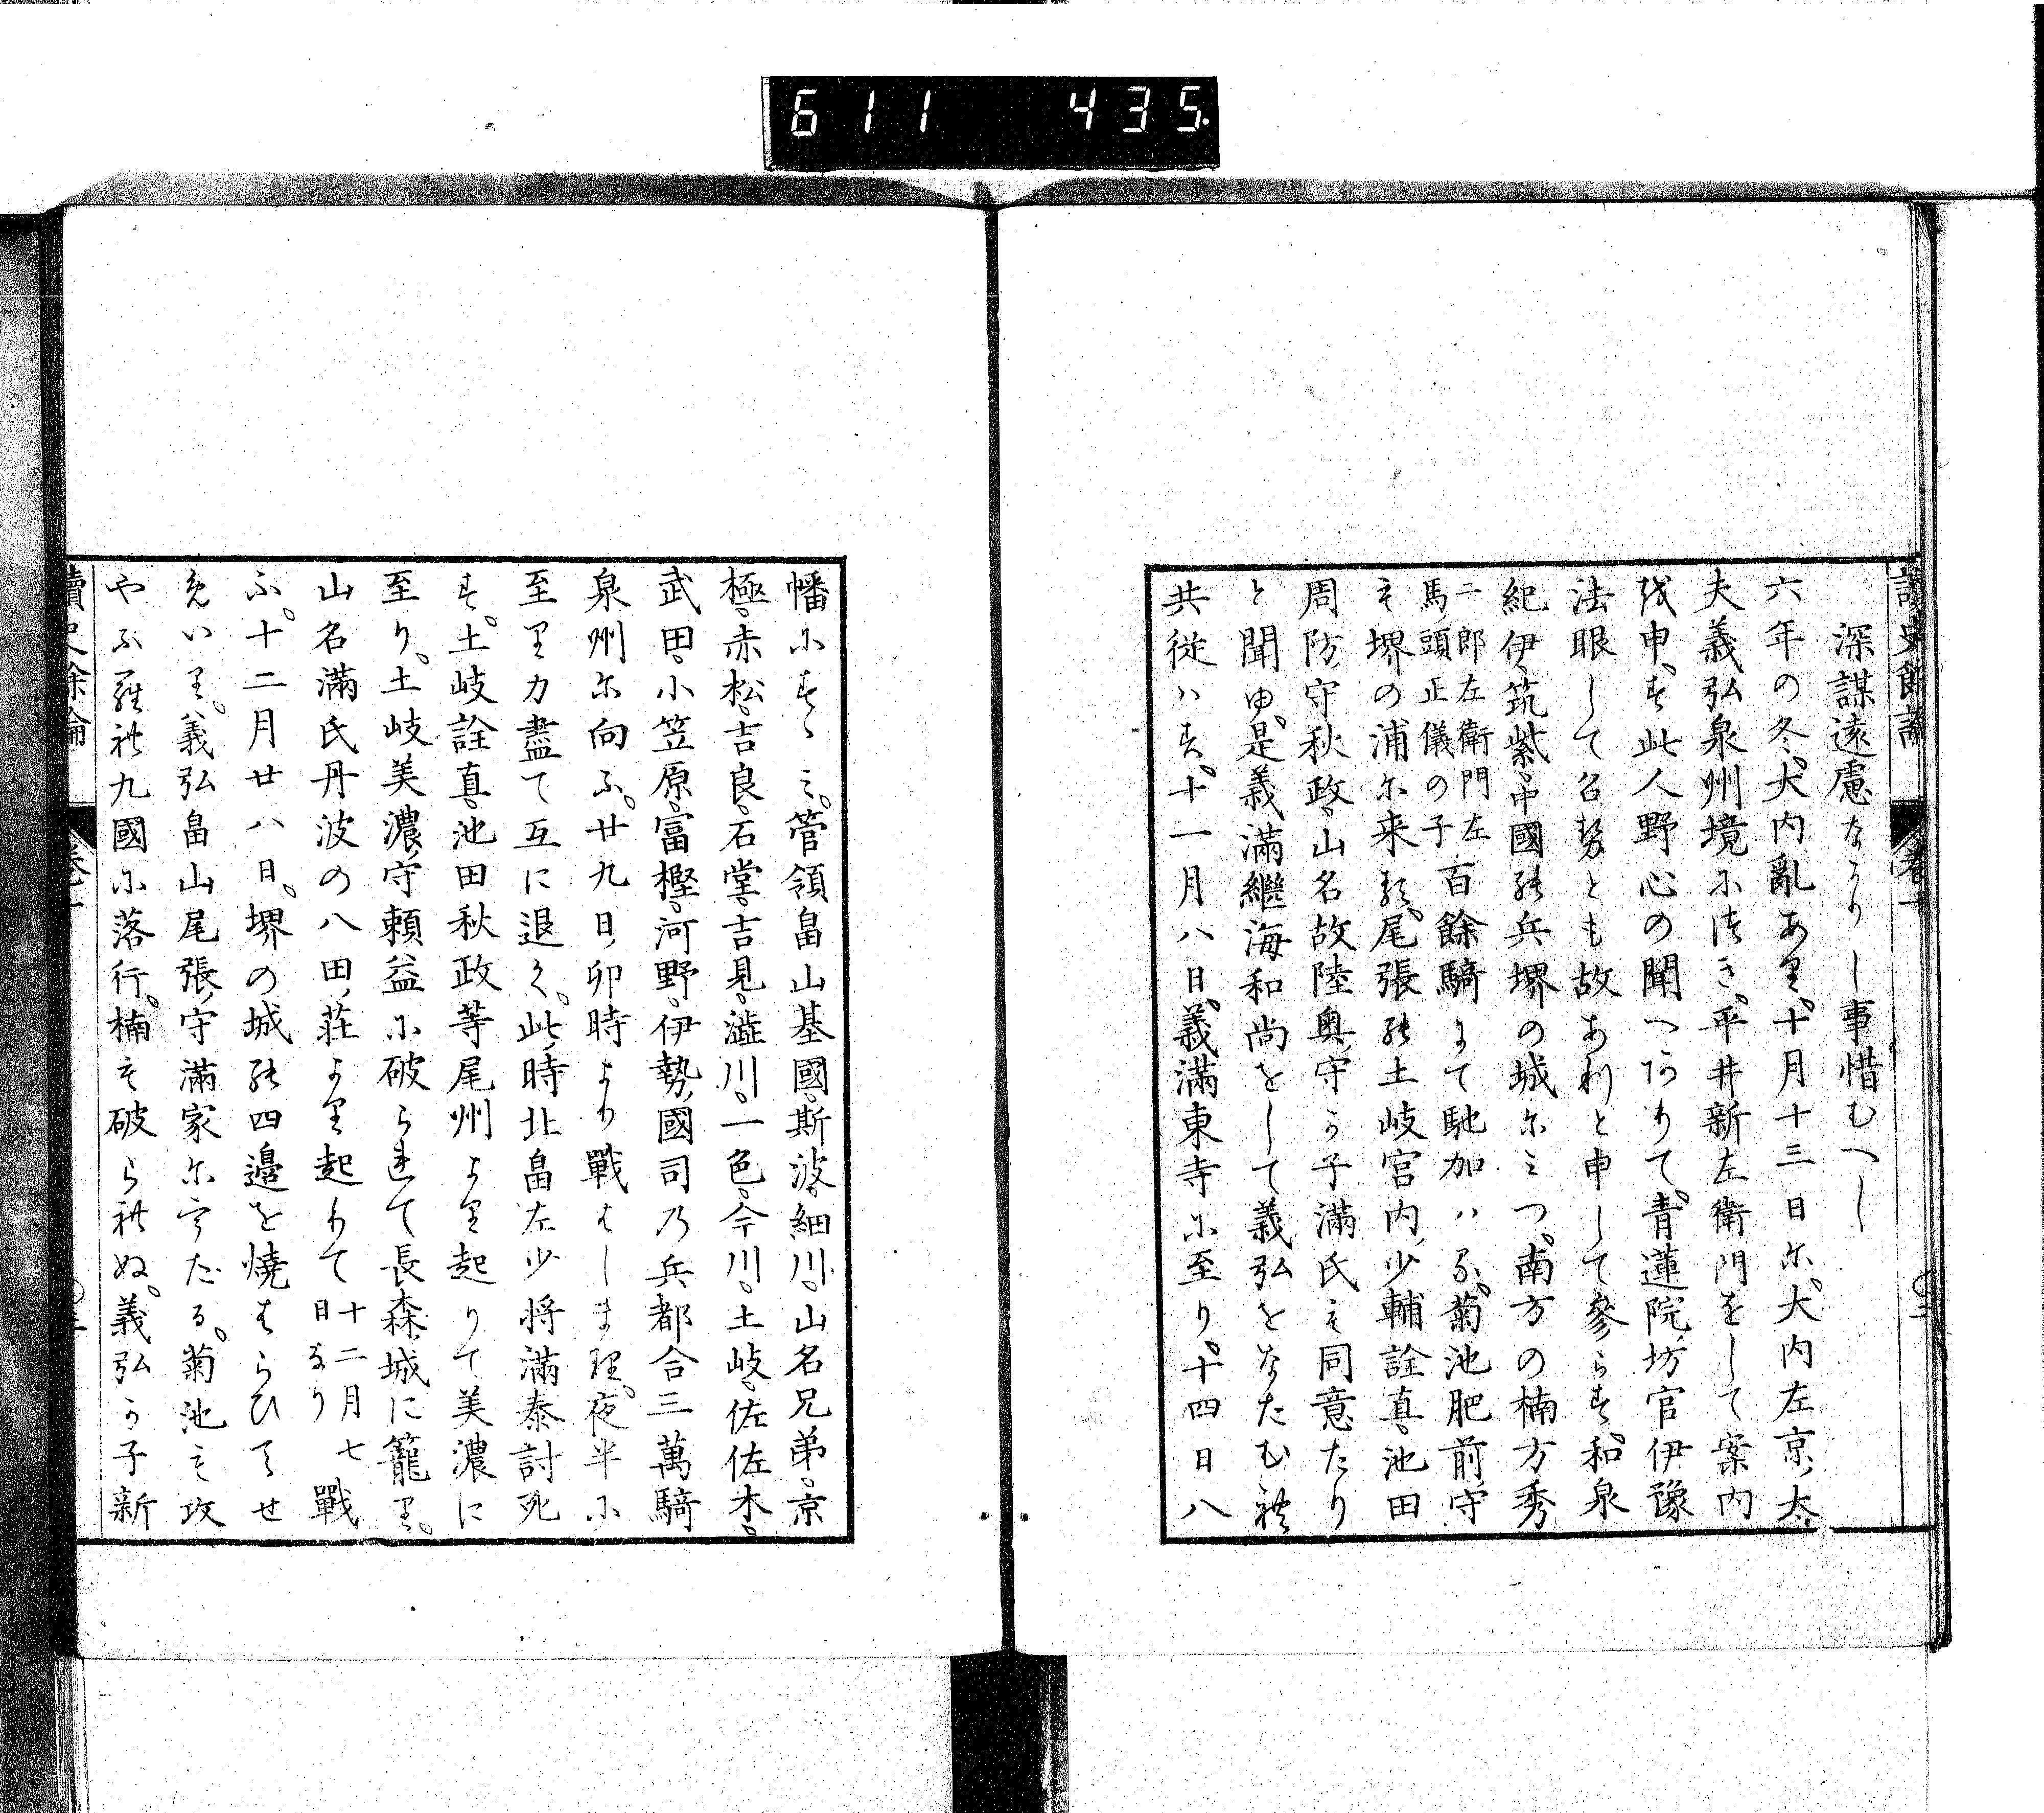 611 435.
讀史餘論 卷十一
深謀遠慮なりし事惜むへし
六年の冬、大内亂あり。十月十三日に、大内左京ノ大
夫義弘泉州境につき、平井新左衛門をして案内
を申、す此人野心の聞へありて、青蓮院ノ坊官伊豫
法眼して召されとも故ありと申して參らす、和泉
紀伊、筑紫、中國の兵堺の城にみつ、南方の楠方秀
二郎左衛門左
馬ノ頭正儀の子
百餘騎にて馳加ハる。菊池肥前守
も堺の浦に来る。尾張の土岐宮内ノ少輔詮真、池田
周防ノ守秋政、山名故陸奥ノ守か子滿氏も同意たり
と聞ゆ、是義滿繼海和尚をして義弘をなたむれ
共従ハす、十一月八日、義滿東寺に至り、十四日八
幡にすゝみ、管領畠山基國、斯波、細川、山名兄弟、京
極、赤松、吉良、石堂、吉見、澁川、一色、今川、土岐、佐佐木、
武田、小笠原、富樫、河野、伊勢ノ國司の兵都合三萬騎
泉州に向ふ。廿九日、卯時より戰はしまり、夜半に
至り力盡て互に退く。此ノ時北畠左少将滿泰討死
す。土岐詮真、池田秋政等尾州より起りて美濃に
至り。土岐美濃ノ守頼益に破られて長森ノ城に籠り。
山名滿氏丹波の八田ノ荘より起りて
十二月七
日なり
戰
ふ。十二月廿八日。堺の城の四邊を焼はらひてせ
めいり。義弘畠山尾張ノ守滿家にうたる。菊池も攻
やふられ九國に落行。楠も破られぬ。義弘か子新
讀史餘論 卷十一